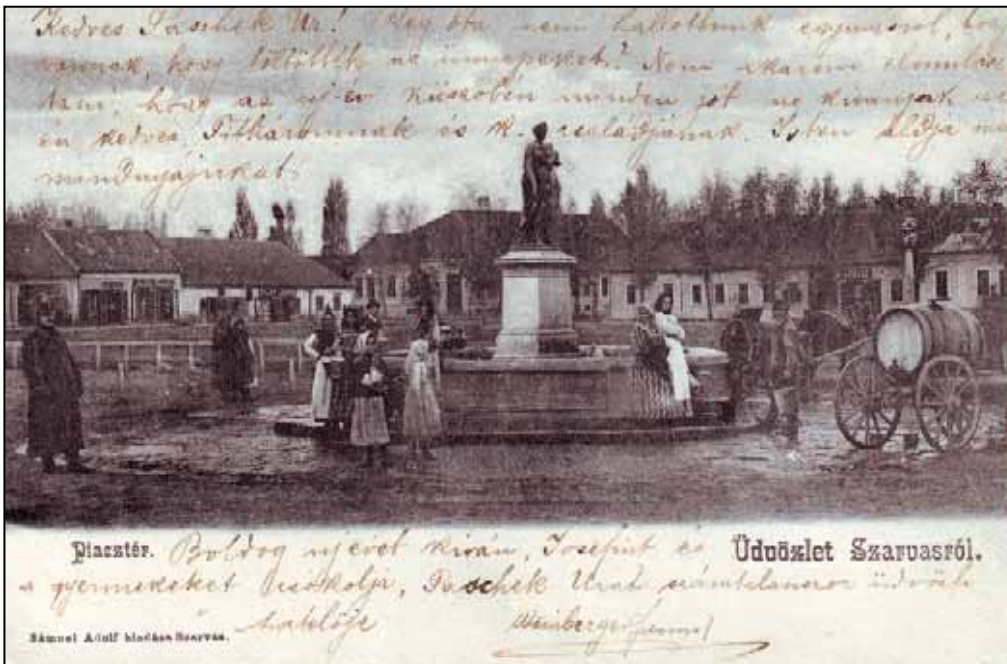 Kedves Paschek Úr! Rég óta nem hallottunk egymásról, hogy
vannak, hogy töltötték az ünnepeket? Nem akarom elmulasz
tani, hogy az új év küszöbén minden jót ne kivánjak
én kedves Titkáromnak és k. családjának. Isten áldja meg
mindnyájukat
Piacztér. Üdvözlet Szarvasról.
Boldog ujévet kiván, Josefint és
a gyermekeket csokolja, Paschek Urat számtalanszor üdvözli
tisztelője Weinberger
Sámuel Adolf kiadása Szarvas.